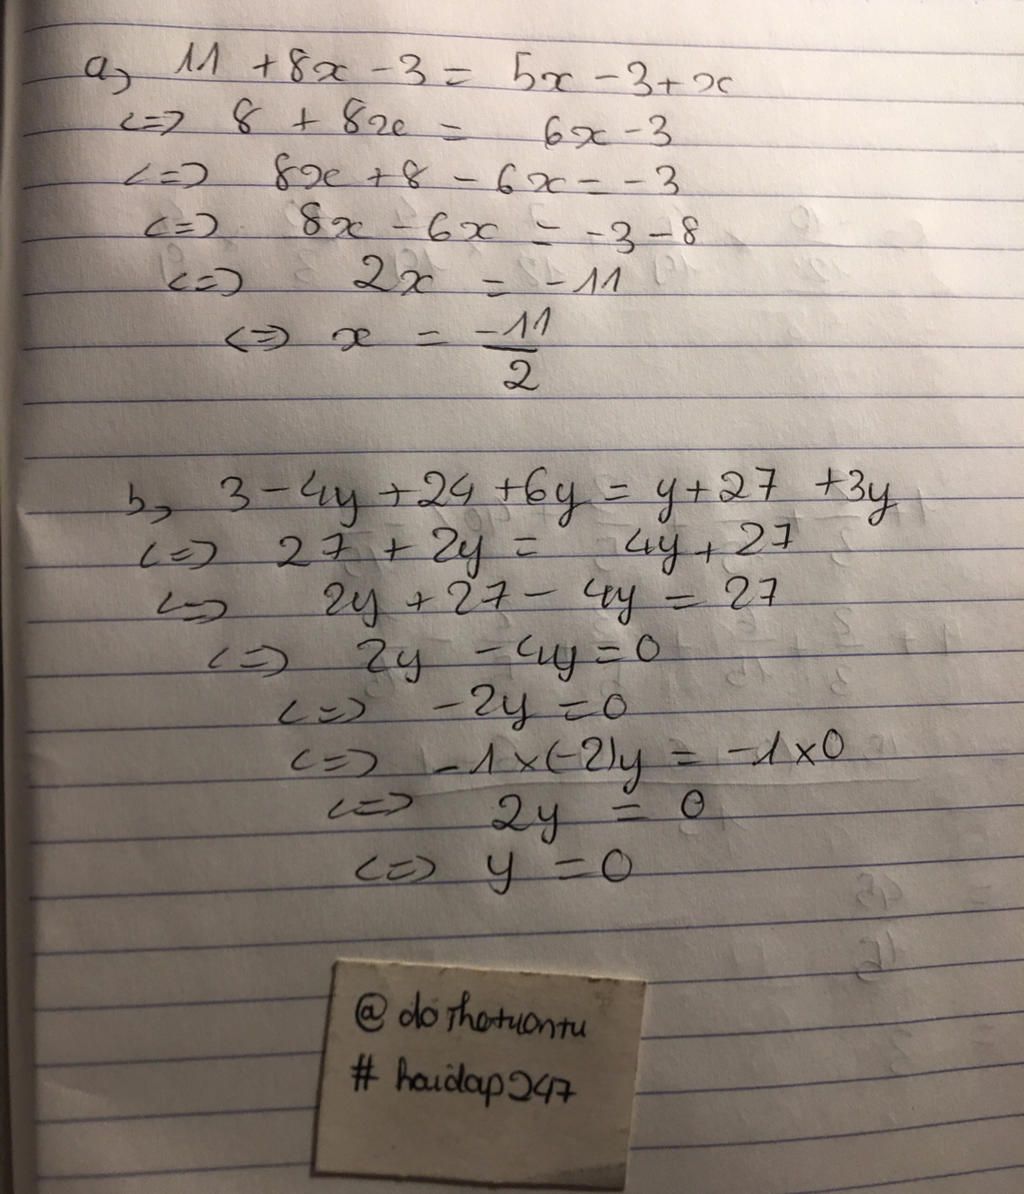 a, 11 + 8x - 3 = 5x - 3 + x
<=> 8 + 8x = 6x - 3
<=> 8x + 8 - 6x = -3
<=> 8x - 6x = -3 - 8
<=> 2x = -11
<=> x = -11/2
b, 3 - 4y + 24 + 6y = y + 27 + 3y
<=> 27 + 2y = 4y + 27
<=> 2y + 27 - 4y = 27
<=> 2y - 4y = 0
<=> -2y = 0
<=> -1 x (-2)y = -1 x 0
<=> 2y = 0
<=> y = 0
# hoidap247